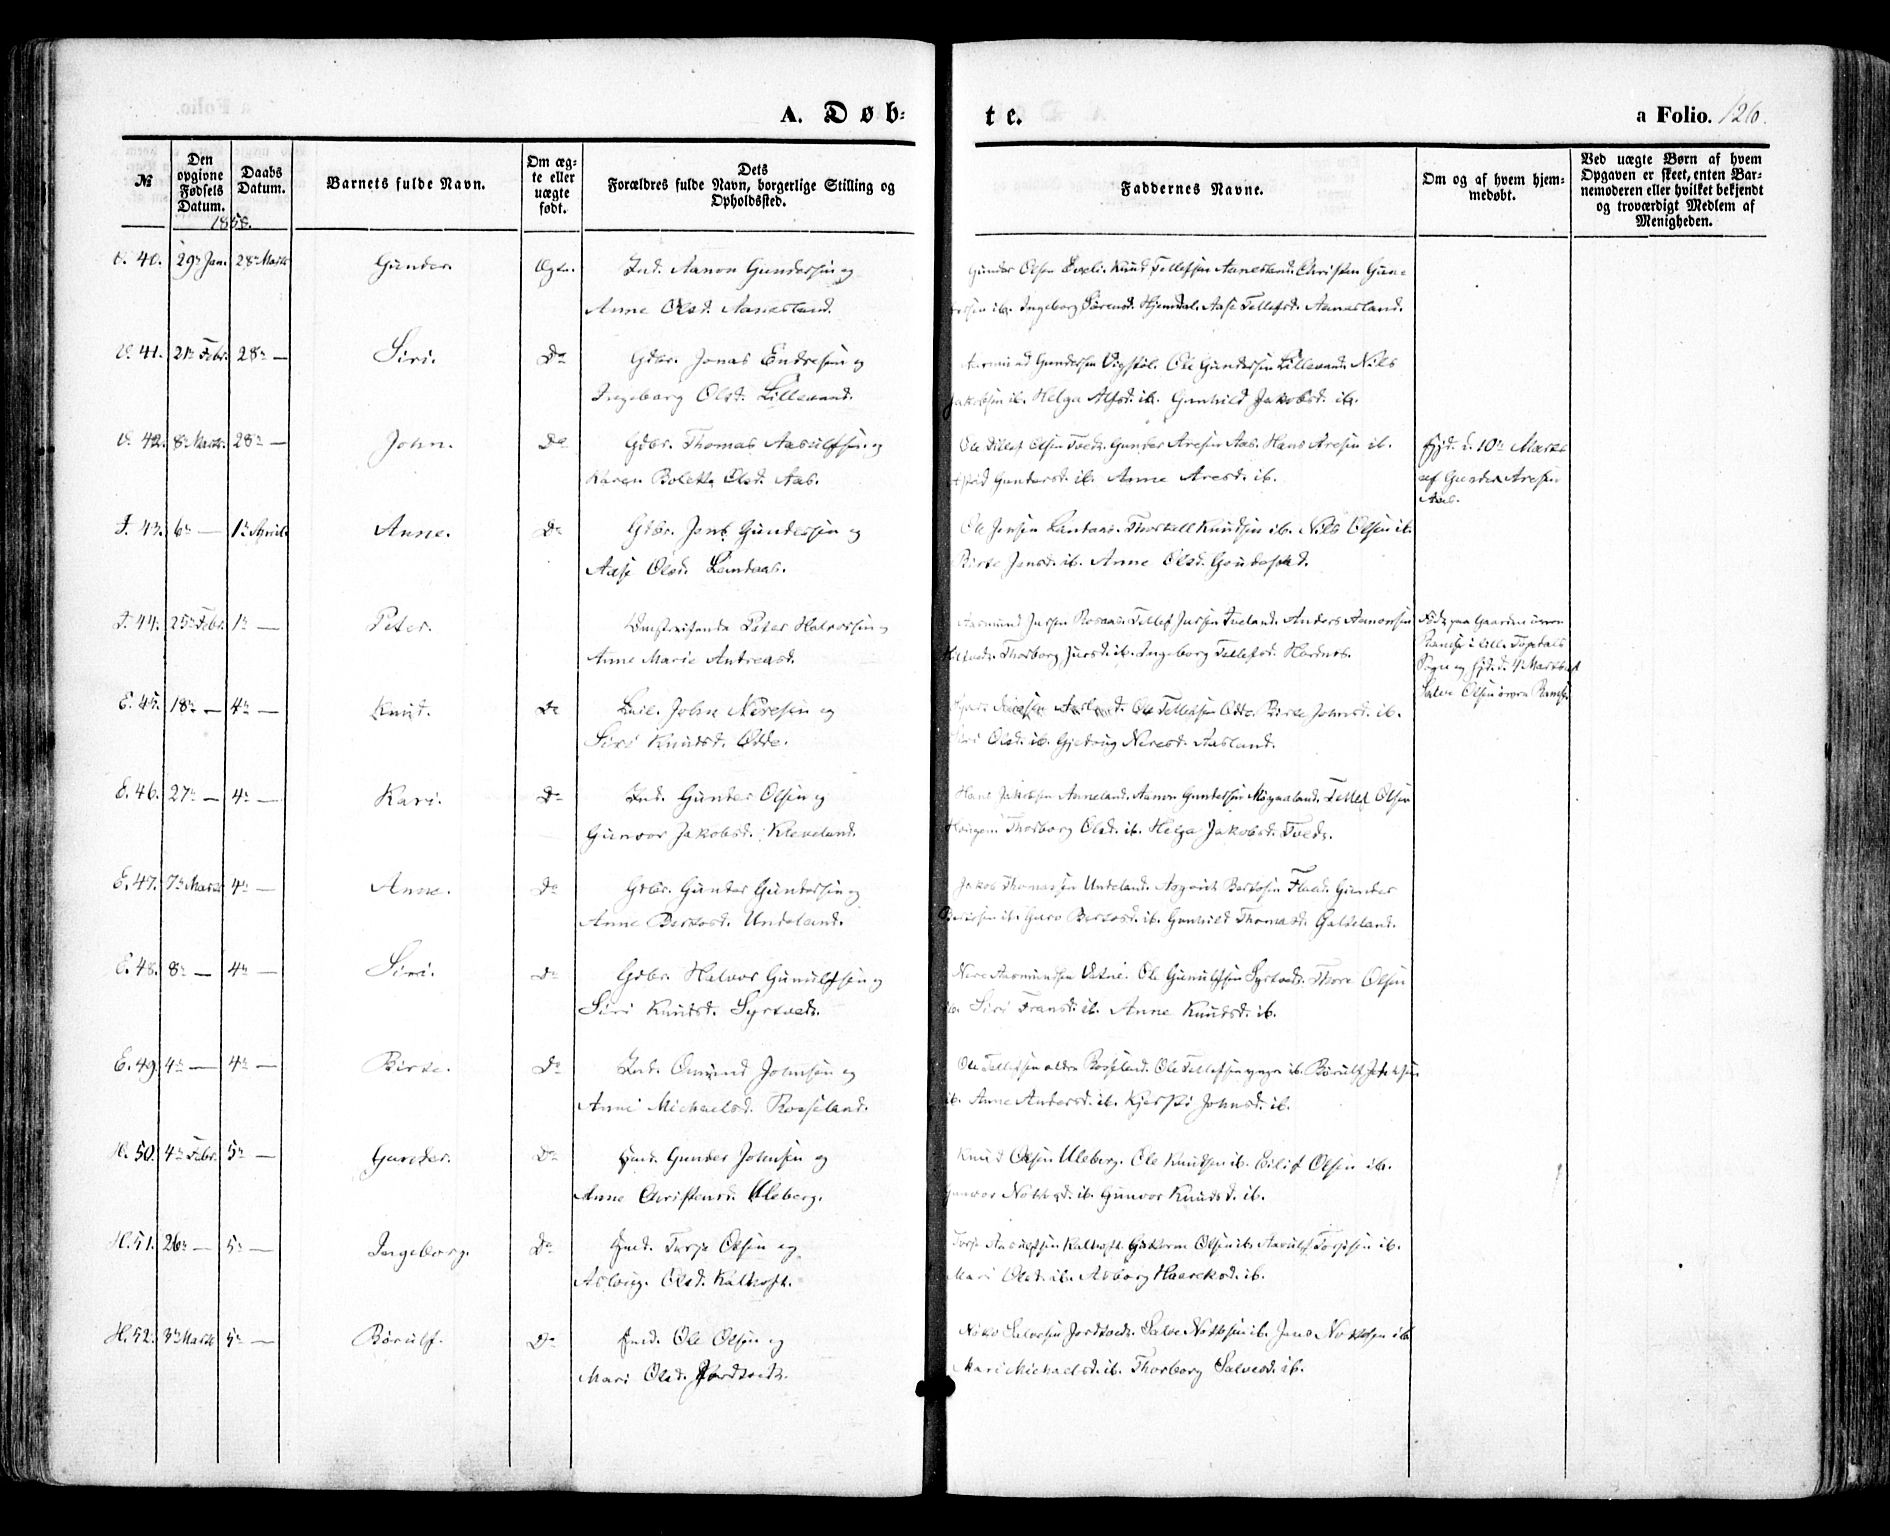 A. Døb-
te.
a Folio. 126.
№
Den opgivne Fødsels Datum.
Daabs Datum.
Barnets fulde Navn.
Om æg-
te eller
uægte
født.
Dets
Forældres fulde Navn, borgerlige Stilling og
Opholdssted.
Faddernes Navne.
Om og af hvem hjem-
medøbt.
Ved uægte Børn af hvem
Opgaven er skeet, enten Bar-
nemoderen eller hvilket bekjendt
og troværdigt Medlem af
Menigheden.
40. 29n Jan. 28n Marts Gunder. Ægte. Ind. Aanon Gundersen og
Anne Olsd. Aanesland.
Gunder Olsen Knud Tellefsen Aanesland. Christen Gun-
dersen ib. Ingeborg Sørensd. Hjemdal. Aase Tellefsd. Aanesland.
41. 21n Febr. 28n — Siri. Do Gdbr. Jonas Endresen og
Ingeborg Olsd. Lillevand.
Aasmund Gundersen Vigstøl. Ole Gundersen Lillevand. Nils
Jakobsen ib. Helga Alfsd. ib. Gunhild Jakobsd. ib.
42. 8n Marts. 28n — John. Do Gdbr. Thomas Aasulfsen og
Karen Bolette Olsd. Aas.
Ole Tellef Olsen Tvede. Gunder Aresen Aas. Hans Aresen ib.
Gundersd. ib. Anne Aresd. ib.
hjd. d. 10n Marts
af Gunder Aresen
Aas.
43. 6n — 1n April. Anne. Do Gdbr. Jens Gundersen og
Aase Olsd. Landaas.
Ole Jensen Landaas. Thorkell Knudsen ib. Nils Olsen ib.
Birte Jensd. ib. Anne Olsd.
44. 25n Febr. 1n — Peter. Peter Halvorsen og
Anne Marie Andreasd.
Aasmund Jursen Rosaas. Tellef Jursen Tveland. Anders Aanonsen
Thorborg Jursd. ib. Ingeborg Tellefsd. Hodnes.
Født paa Gaarden øvren
i Lille Topdals
Sogn og hjd. d. 4n Marts af
Salve Olsen øvren
E. 45. 18n — 4n — Knud. Do John Neresen og
Siri Knudsd. Odde.
Ole Tellefsen Odde. Birte Johnsd. ib.
Siri Olsd. ib. Gjedoug Neresd. Aasland.
E. 46. 27n — 4n — Kari. Do Ind. Gunder Olsen og
Gunvor Jakobsd. Kleveland.
Hans Jakobsen Aaneland. Aanon Gundersen Tellef Olsen
Haugen. Thorborg Olsd. ib. Helga Jakobsd. Tvede.
E. 47. 7n Marts 4n — Anne. Do Gdbr. Gunder Gundersen og
Anne Bertosd. Undeland.
Jakob Thomassen Undeland. Bertosen Gunder
Bertosen ib. Guro Bertosd. ib. Gunhild Thomasd. Galteland.
E. 48. 8n — 4n — Siri. Do Gdbr. Halvor Gunulfsen og
Siri Knudsd. Syrtveit.
Nere Aasmundsen Vetne. Ole Gunulfsen Syrtveit. Thore Olsen
ib. Siri Fransd. ib. Anne Knudsd. ib.
E. 49. 4n — 4n — Birte. Do Ind. Omund Johnsen og
Anne Michaelsd. Rosseland.
Ole Tellefsen eldre Rosseland. Ole Tellefsen yngre ib. Børulf
ib. Anne Andersd. ib. Kjersti Johnsd. ib.
H. 50. 4n Febr. 5n — Gunder. Do Ind. Gunder Johnsen og
Anne Christensd. Uleberg.
Knud Olsen Uleberg. Ole Knudsen ib. Eilif Olsen ib.
Gunvor ib. Gunvor Knudsd. ib.
H. 51. 26n — 5n — Ingeborg. Do Ind. Terje Olsen og
Aslaug Olsd. Kalhoft.
Terje Aasulfsen Kalhoft. Guttorm Olsen ib. Aasulf Terjesen ib.
Mari Olsd. ib. Asborg ib.
H. 52. 3n Marts 5n — Børulf. Do Ind. Ole Olsen og
Mari Olsd. Jordtveit.
Salvesen Jordtveit. Salve ib. Jens ib.
Mari Michaelsd. ib. Thorborg Salvesd. ib.